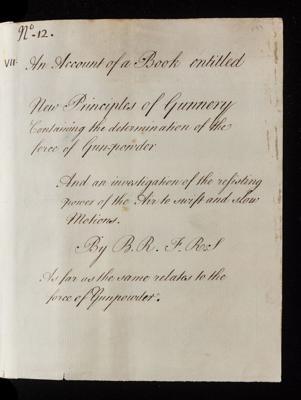 No. 12.
VII. An Account of a Book entitled
New Principles of Gunnery
Containing the determination of the
force of Gun-powder
And an investigation of the resisting
power of the Air to swift and slow
Motions.
By B. R. F. R. S
As far as the same relates to the
force of Gunpowder.